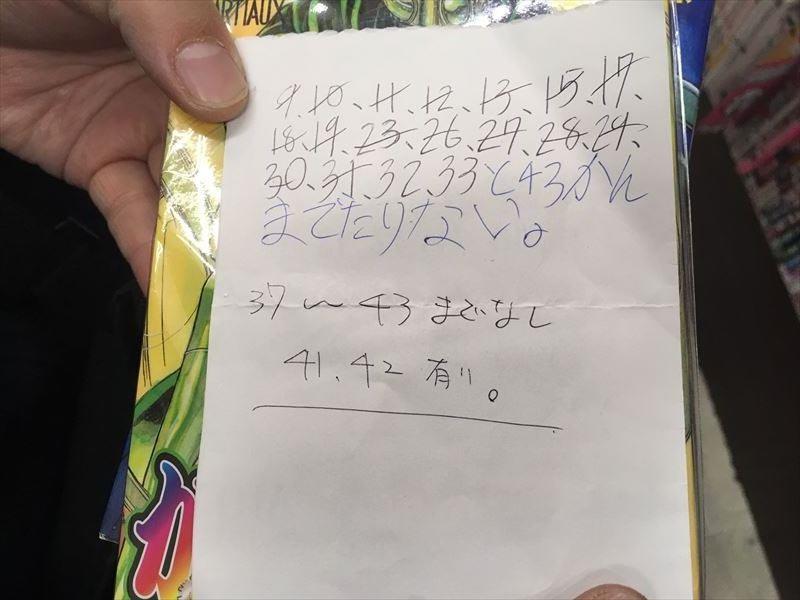 ARTIAUX
9、10、11、12、13、15、17、
18、19、23、26、27、28、29、
30、31、32、33と43かん
までたりない。
37〜43までなし
41、42有り。
が